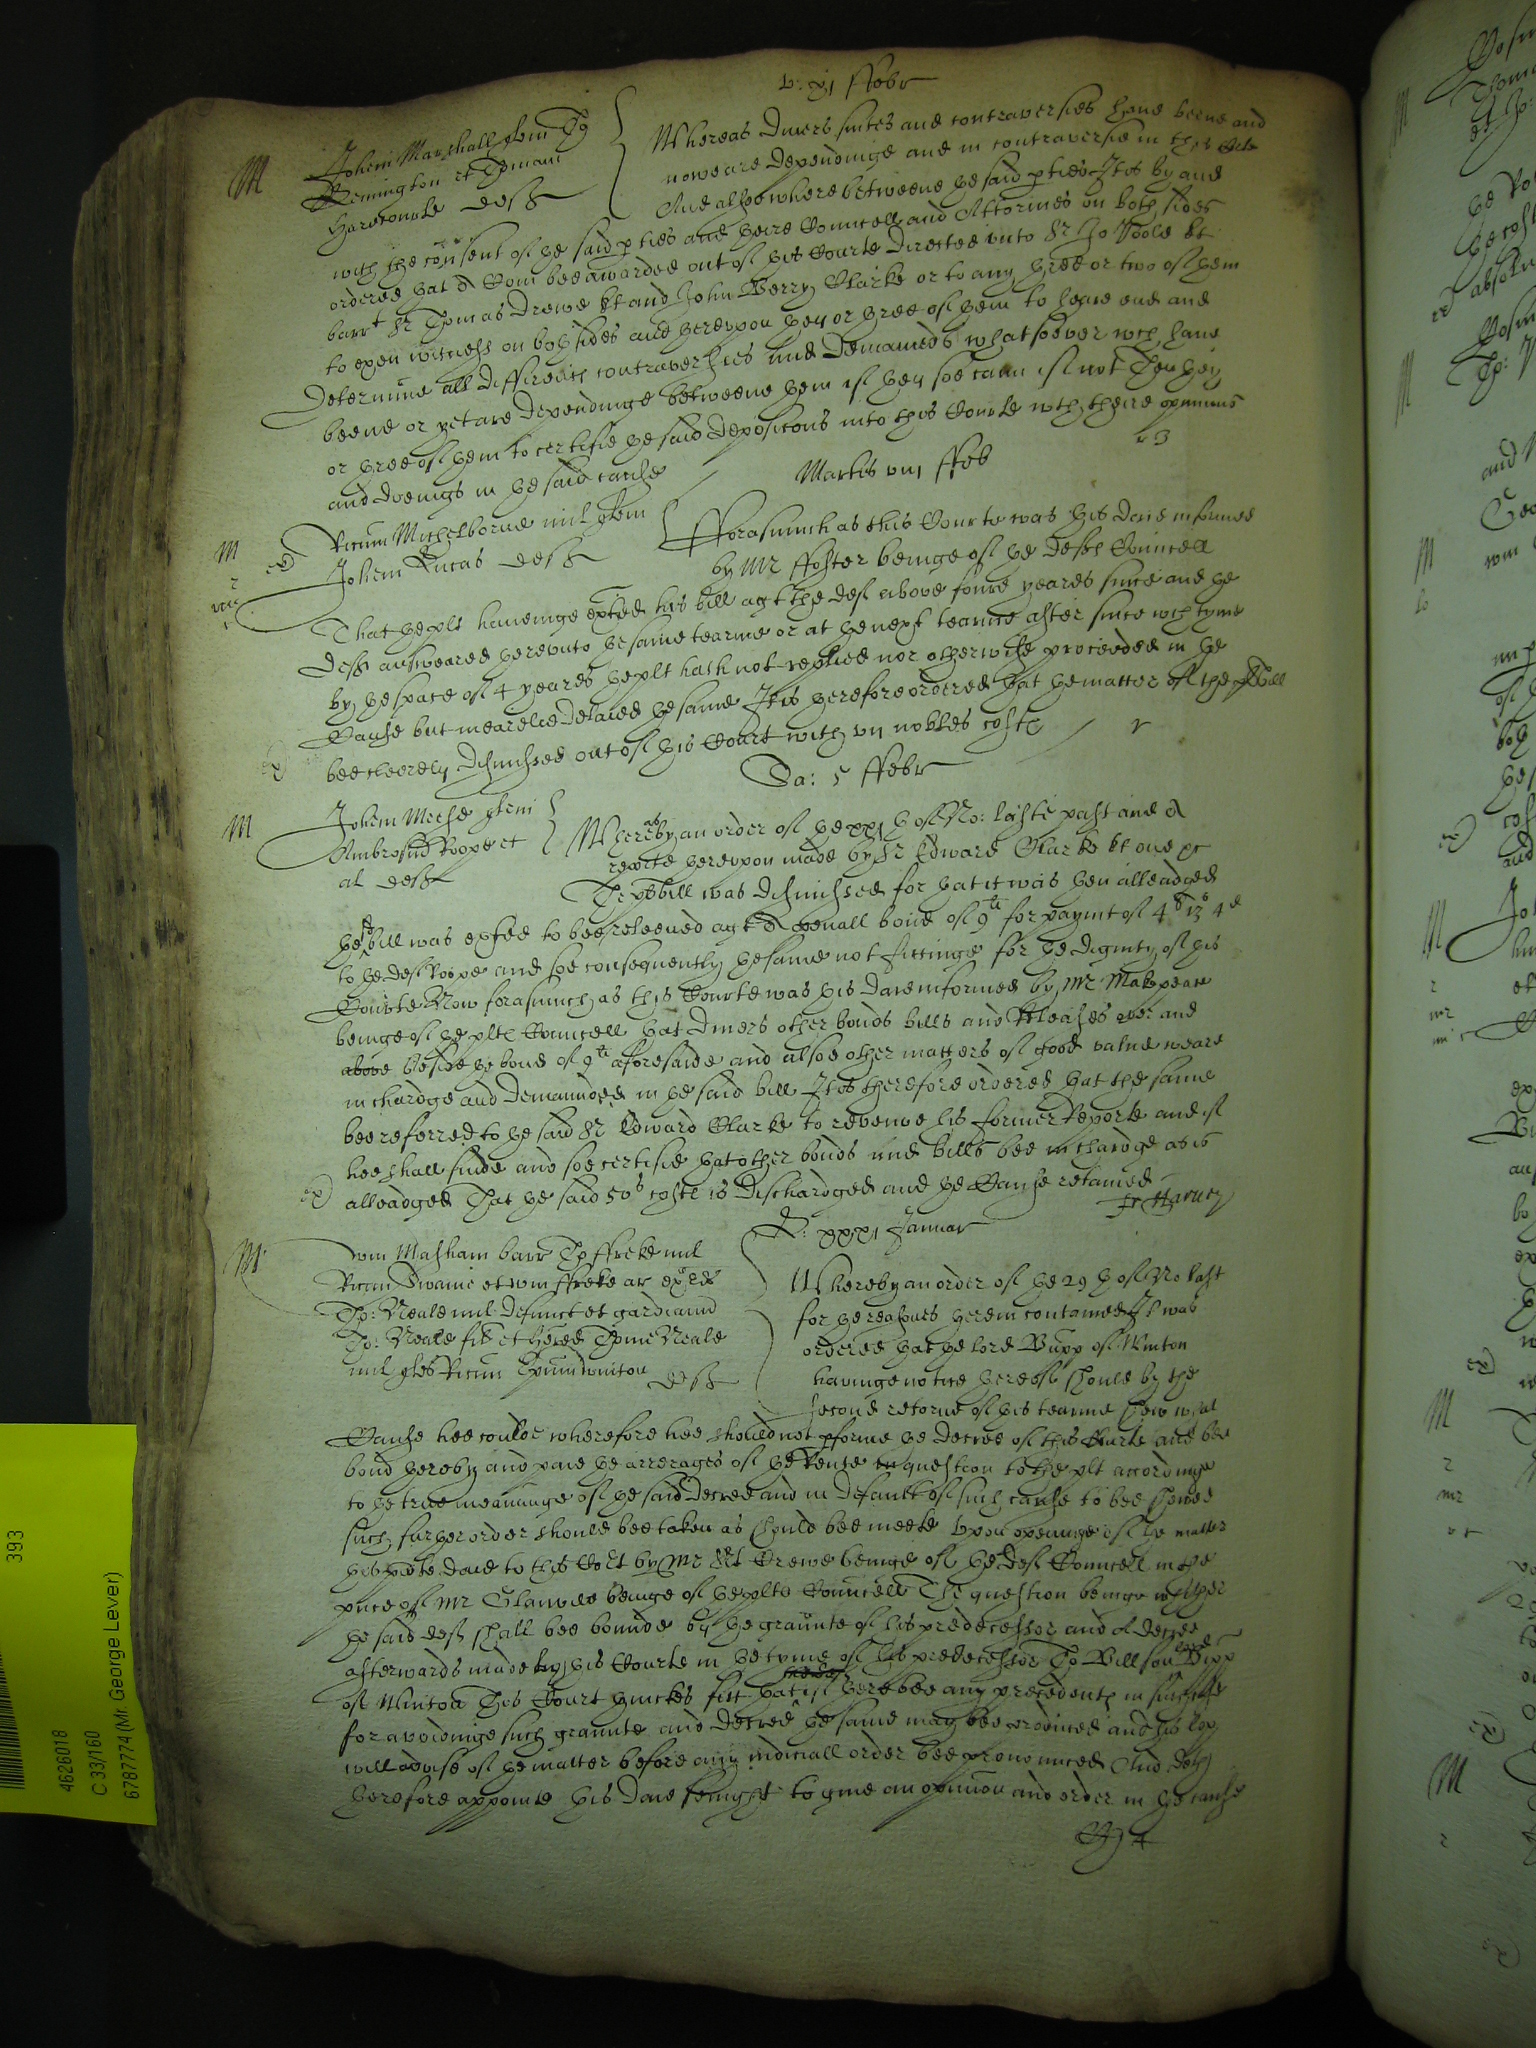 v: xj ffebr
M Johem Marshall quer Tho
Remington et Thomam
Harecourte deftes
Whereas divers suites and contraversies have beene and
nowe are dependinge and in contraversie in this Courte
And alsoe where betweene the said parties It is by and
with the consent of the said parties and theire Councell and Attornies on both sides
ordered that a Com beeawarded out of this Courte directed unto Sr Jo Poole kt
barrt Sr Thomas Drewe kt and John Berry Clarke or to any three or two of them
to exen witness on both sides and thereupon they or three of them to heare end and
determine all differences contraversies and demaunds whatsoever wch have
beene or yet are dependinge betweene them if they soe cann if not Then they
or three of them to certifie the said deposicons into this Courte wth theire opinions
and doeings in the said cause r 3
Martis viij ffeb
M Ricum Michelborne mil quer
Johem Lucas deft
fforasmuch as this Courte was this daie informed
by Mr ffoster beinge of the defts Councell
That the plt haveinge exhted his bill agt the def above foure yeares since and the
deft answeared thereunto the same tearme or at the next tearme after since wch tyme
by the space of 4 yeares the plt hath not replied nor otherwise proceeded in the
Cause but mearelie delaied the same It is therefore ordered that the matter of the pls bill
bee cleerely dismissed out of this Court with vij nobles costs r
Sa: 5 ffebr
M Johem Meese quer
Ambrosiu Roope et
al deft
Whereas by an order of the xxj th of No: laste past and a
reporte thereupon made by Sr Edward Clarke kt one &c
The pls bill was dismissed for that it was then alleadged
the bill was exhted to bee releeved agt a penall bond of 9li for paymt of 4li 13s 4d
to the def Roope and soe consequently the same not fittinge for the dignity of this
Courte Now forasmuch as this Courte was this daie informed by Mr Makepeace
beinge of the plts Councell that divers other bonds bills and Releases over and
above beside the bond of 9li aforesaide and alsoe other matters of good value weare
in chardge and demaunded in the said bill It is therefore ordered that the same
bee referred to the said Sr Edward Clarke to reveiwe his former Reporte and if
hee shall finde and soe certifie that other bonds and bills bee in chardge as is
alleadged That the said 50s costs is dischardged and the Cause retained
Jr Harvey
L: xxxj Januar
M Wm Masham barr Th ffreke mil
Ricum Swaine et wm ffreke ar
Th: Neale mil defunct et gardianu
Th: Neale fil et hered Thome Neale
mil ques Ricum Epum winton deft
Whereby an order of the 29 th of No last
for the reasons therein contained It was
ordered that the lord Bupp of Winton
havinge notice thereof should by the
second retorne of this tearme shew what
Cause hee coulde wherefore hee should not pforme the decree of this Courte and bee
bond thereby and paie the arrerages of the Rente in question to the plt accordinge
to the true meaninge of the said decree and in default of such cause to bee shewed
such further order should bee taken as should bee meete upon openinge of the matter
this pnte daie to this Cort by Mr Srt Crewe beinge of the def Councell in the
pnce of Mr Glanvile beinge of the plts Councell The question beinge whether
the said deft shall bee bounde by the graunte of his predecessor and a decree
afterwards made by this Courte in the tyme of his predecessor Th Billson late Bupp
of Winton This Court thinkes fitt that if there bee any precedents in such case
for avoidinge such graunte and decree the same may bee produced and his lop
will advise of the matter before any iudiciall order bee pronounced And doth
therefore appointe this daie senight to give an opinion and order in the cause
393
4626018
C 33/160
6787774 (Mr. George Lever)